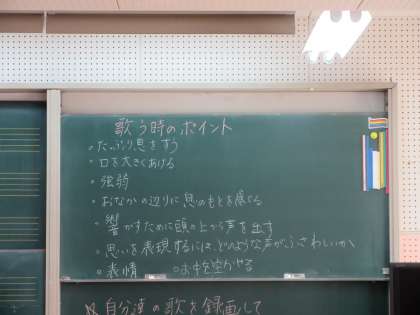 歌う時のポイント
・たっぷり息をすう
・口を大きくあける
・強弱
・おなかの辺りに息のもとを感じる
・響かすために頭の上から声を出す
・思いを表現するには、どのような声がふさわしいか
・表情 ・お中を空かせる
自分達の歌を録画して